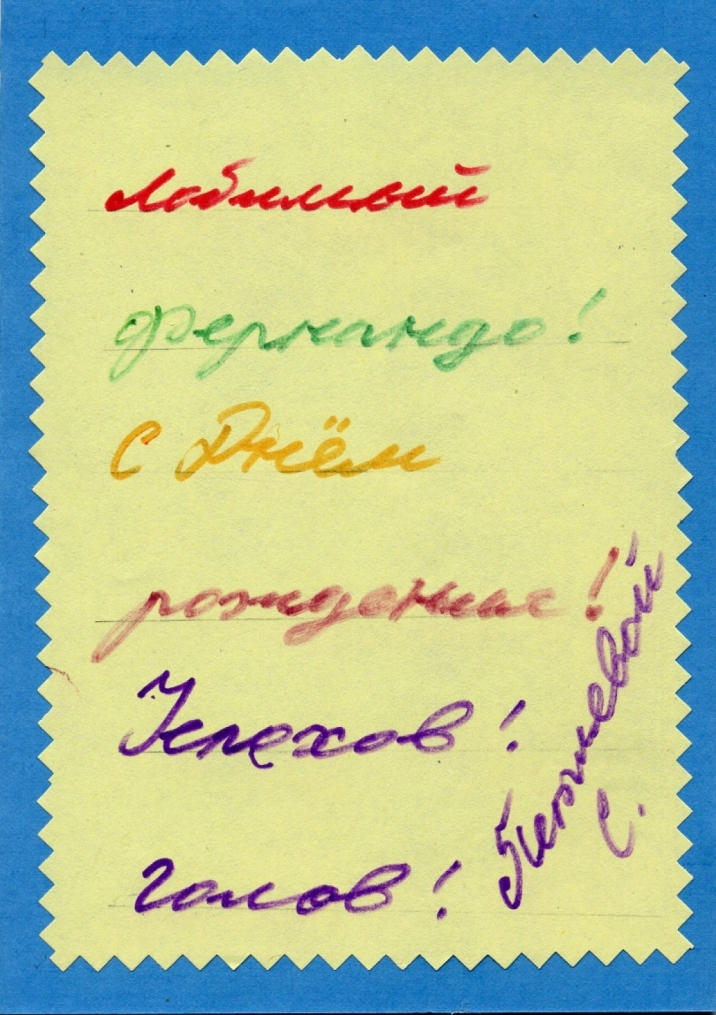 Любимый
Фернандо!
С Днём
рождения!
Успехов!
голов!
С.